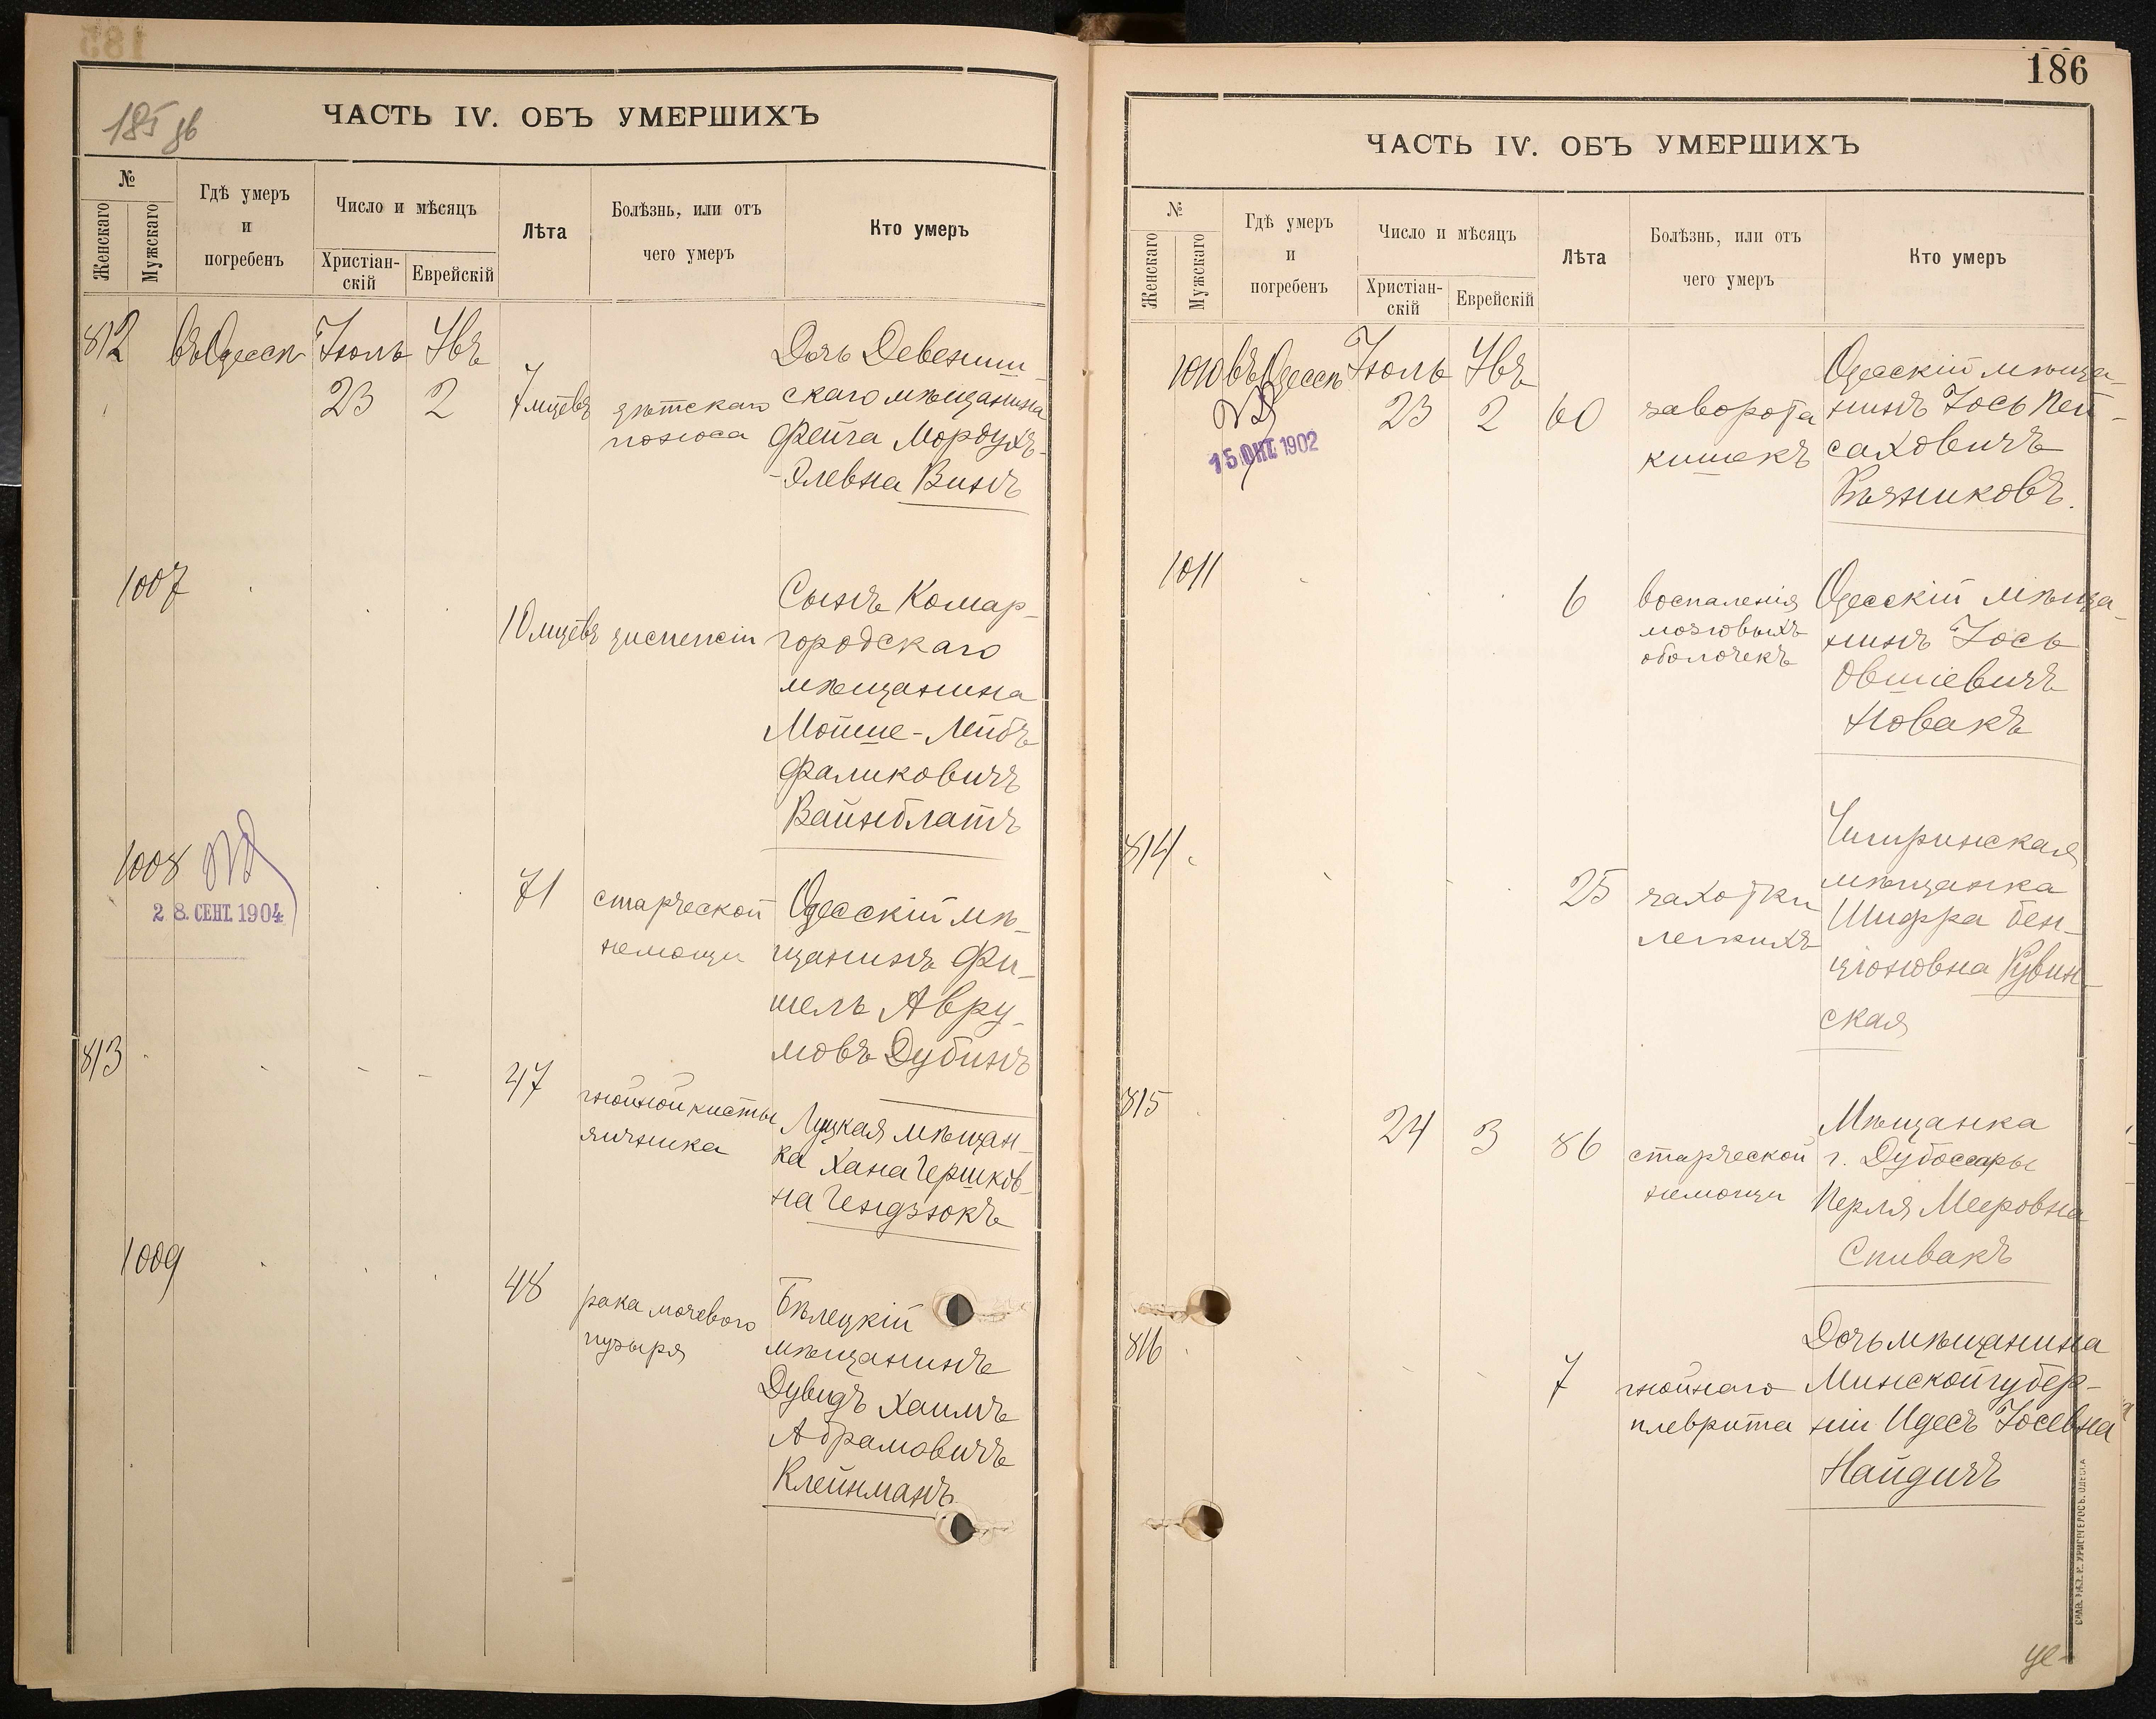 185 об
ЧАСТЬ IV. ОБЪ УМЕРШИХЪ
№
Женскаго
Мужскаго
Гдѣ умеръ
и
погребенъ
Число и мѣсяцъ
Христіан-
скій
Еврейскій
Лѣта
Болѣзнь, или отъ
чего умеръ
Кто умеръ
812
въ Одессѣ
Іюль
23
Явъ
2
7 мцевъ
дѣтскаго
поноса
Дочь Девениш-
скаго мѣщанина
Фейга Мордухъ-
-Элевна Винъ
1007
10 мцевъ
диспепсіи
Сынъ Комар-
городскаго
мѣщанина
Мойше-Лейбъ
Фаликовичъ
Вайнблатъ
1008
28. СЕНТ. 1904
71
старческой
немощи
Одесскій мѣ-
щанинъ Фи-
шель Авру-
мовъ Дубинъ
813
47
гнойной кисты
яичника
Луцкая мѣщан-
ка Хана Гершков-
на Гендзюкъ
1009
48
рака мочевого
пузыря
Бѣлецкій
мѣщанинъ
Дувидъ Хаимъ
Абрамовичъ
Клейнманъ
186
ЧАСТЬ IV. ОБЪ УМЕРШИХЪ
№
Женскаго
Мужскаго
Гдѣ умеръ
и
погребенъ
Число и мѣсяцъ
Христіан-
скій
Еврейскій
Лѣта
Болѣзнь, или отъ
чего умеръ
Кто умеръ
1010
въ Одессѣ
15 ОКТ. 1902
Іюль
23
Явъ
2
60
заворота
кишекъ
Одесскій мѣща-
нинъ Іось Пей-
саховичъ
Вязниковъ.
1011
6
воспаленія
мозговыхъ
оболочекъ
Одесскій мѣща-
нинъ Іось
Овшіевичъ
Новакъ
814
25
чахотки
легкихъ
Чигиринская
мѣщанка
Шифра Бен-
ціоновна Рувин-
ская
815
24
3
86
старческой
немощи
Мѣщанка
г. Дубоссары
Перля Мееровна
Спивакъ
816
7
гнойнаго
плеврита
Дочь мѣщанина
Минской губер-
ніи Идесъ Іосевна
Найдичъ